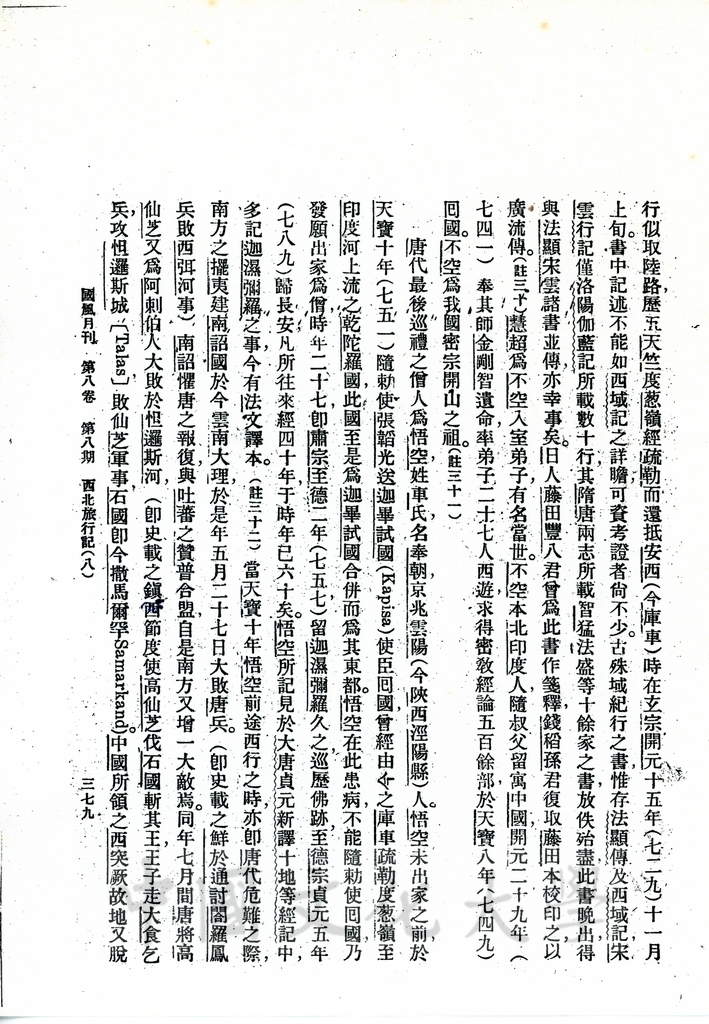 行似取陸路歷五天竺度葱嶺經疏勒而還抵安西(今庫車)時在玄宗開元十五年(七二九)十一月
上旬書中記述不能如西域記之詳贍可資考證者尙不少古殊域紀行之書惟存法顯傳及西域記宋
雲行記僅洛陽伽藍記所載數十行其隋唐兩志所載智猛法盛等十餘家之書放佚殆盡此書晚出得
與法顯宋雲諸書並傳亦幸事矣。日人藤田豐八君曾爲此書作箋釋錢稻孫君復取藤田本校印之以
廣流傳。(註三十)慧超爲不空入室弟子有名當世。不空本北印度人隨叔父留寓中國開元二十九年(
七四一)奉其師金剛智遺命率弟子二十七人西遊求得密敎經論五百餘部於天寶八年(七四九)
囘國。不空爲我國密宗開山之祖。(註三十一)
唐代最後巡禮之僧人爲悟空姓車氏名奉朝京兆雲陽(今陝西涇陽縣)人。悟空未出家之前於
天寶十年(七五一)隨勅使張韜光送迦畢試國(Kapisa)使臣囘國曾經由今之庫車疏勒度葱嶺至
印度河上流之乾陀羅國此國至是爲迦畢試國合併而爲其東都。悟空在此患病不能隨勅使囘國乃
發願出家爲僧時年二十七卽肅宗至德二年(七五七)留迦濕彌羅久之巡歷佛跡至德宗貞元五年
(七八九)歸長安凡所往來經四十年于時年已六十矣。悟空所記見於大唐貞元新譯十地等經記中
多記迦濕彌羅之事今有法文譯本。(註三十二)當天寶十年悟空前途西行之時亦卽唐代危難之際
南方之擺夷建南詔國於今雲南大理於是年五月二十七日大敗唐兵。(卽史載之鮮于通討閣羅鳳
兵敗西弭河事)南詔懼唐之報復與吐蕃之贊普合盟自是南方又增一大敵焉。同年七月間唐將高
仙芝又爲阿剌伯人大敗於怛邏斯河(卽史載之鎭西節度使高仙芝伐石國斬其王王子走大食乞
兵攻怛邏斯城〔Talas〕敗仙芝軍事石國卽今撒馬爾罕Samarkand)。中國所領之西突厥故地又脫
國風月刊 第八卷 第八期 西北旅行記(八) 三七九
中國文化大學